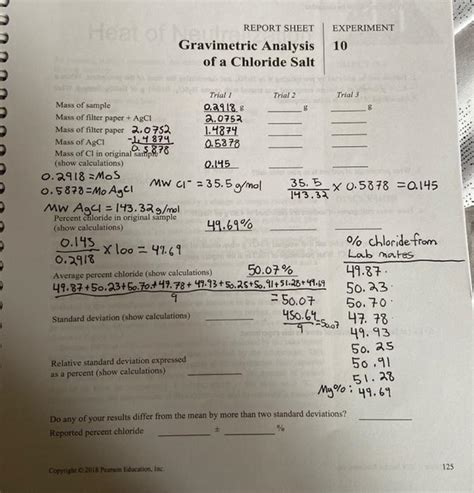 REPORT SHEET | EXPERIMENT
Gravimetric Analysis 10
of a Chloride Salt
Trial 1 Trial 2 Trial 3
Mass of sample 0.2918 g g g
Mass of filter paper + AgCl 2.0752
Mass of filter paper 2.0752 1.4874
Mass of AgCl -1.4874 0.5878
Mass of Cl in original sample 0.5878
(show calculations) 0.145
0.2918 = MoS
0.5878 = Mo AgCl MW Cl⁻ = 35.5 g/mol 35.5/143.32 x 0.5878 = 0.145
MW AgCl = 143.32 g/mol
Percent chloride in original sample
(show calculations) 49.69%
0.145/0.2918 x 100 = 49.69
% chloride from
Lab mates
Average percent chloride (show calculations) 50.07% 49.87
49.87+50.23+50.70+47.78+49.93+50.25+50.91+51.28+49.69/9 50.23
= 50.07 50.70
Standard deviation (show calculations) 450.64/9 = 50.07 47.78
49.93
50.25
Relative standard deviation expressed 50.91
as a percent (show calculations) 51.28
My%: 49.69
Do any of your results differ from the mean by more than two standard deviations?
Reported percent chloride ± %
Copyright © 2018 Pearson Education, Inc. 125